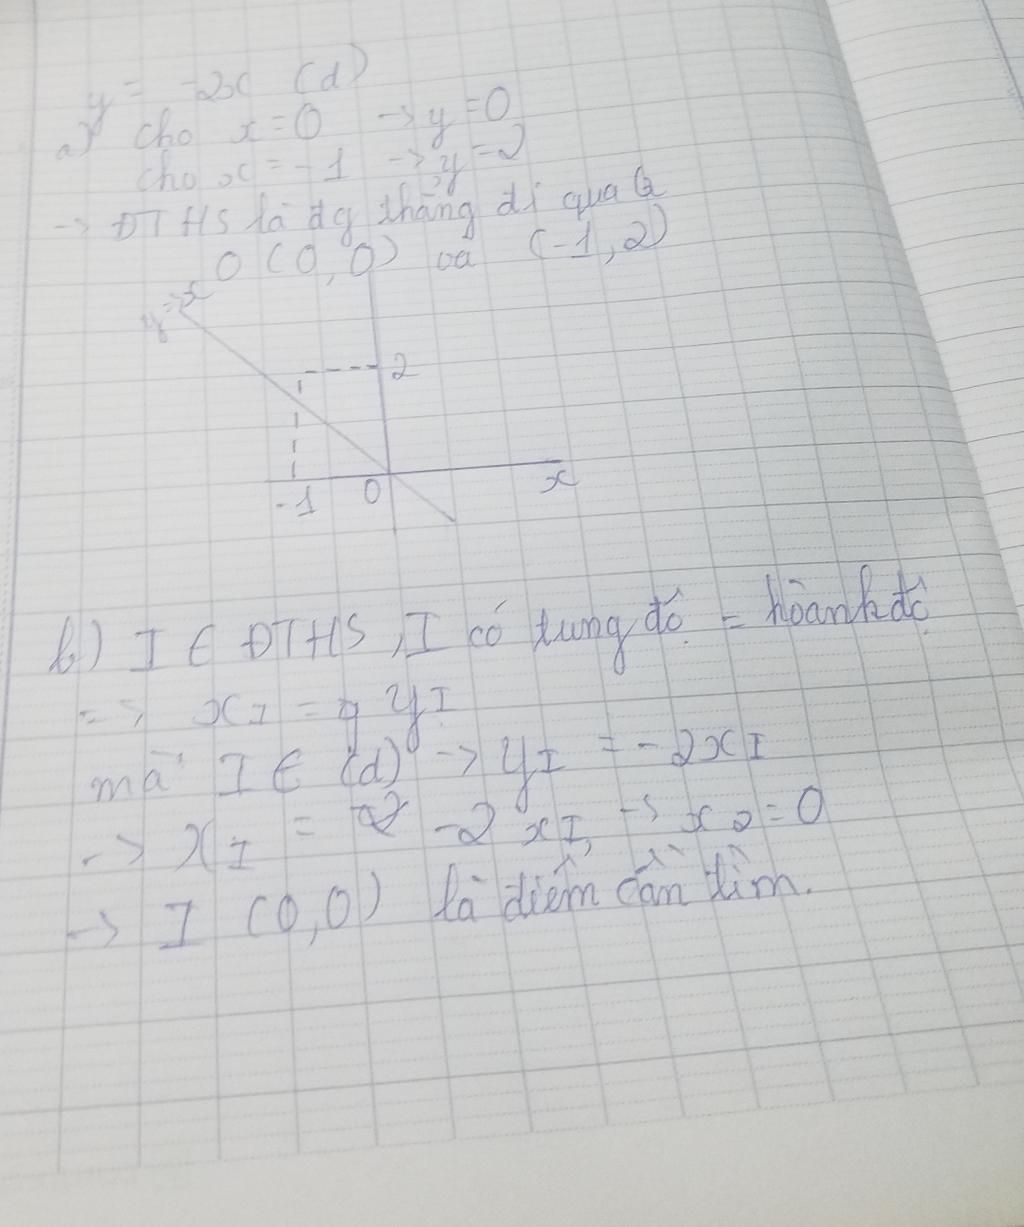 y = -2x (d)
a) cho x = 0 -> y = 0
cho x = -1 -> y = 2
-> ĐTHS là đg thẳng đi qua
O (0, 0) và (-1, 2)
2
-1 0 x
b) I ∈ ĐTHS, I có tung độ = hoành độ
=> xI = yI
mà I ∈ (d) -> yI = -2xI
-> xI = -2xI -> = 0
-> I (0,0) là điểm cần tìm.